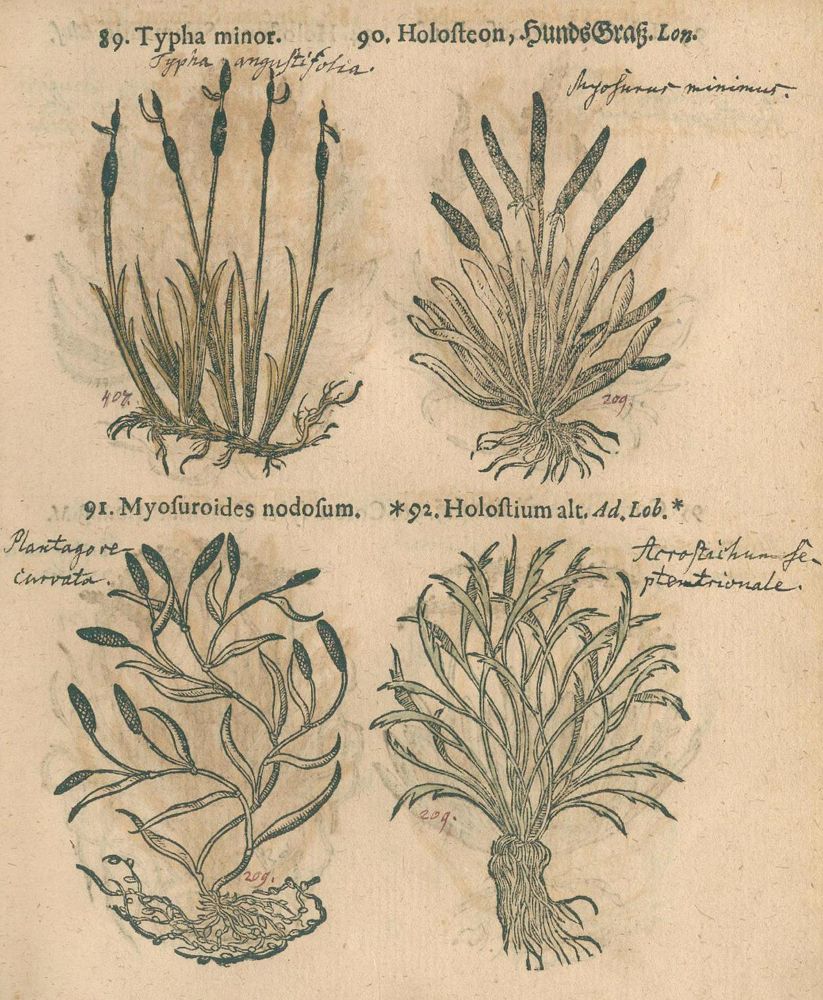 89. Typha minor.
Typha angustifolia.
90. Holoſteon, HundsGraß. Lon.
Myosurus minimus.
407.
209.
91. Myoſuroides nodoſum.
Plantago re-
curvata.
209.
*92. Holoſtium alt. Ad. Lob.*
Acroſtichum ſe-
ptentrionale.
209.